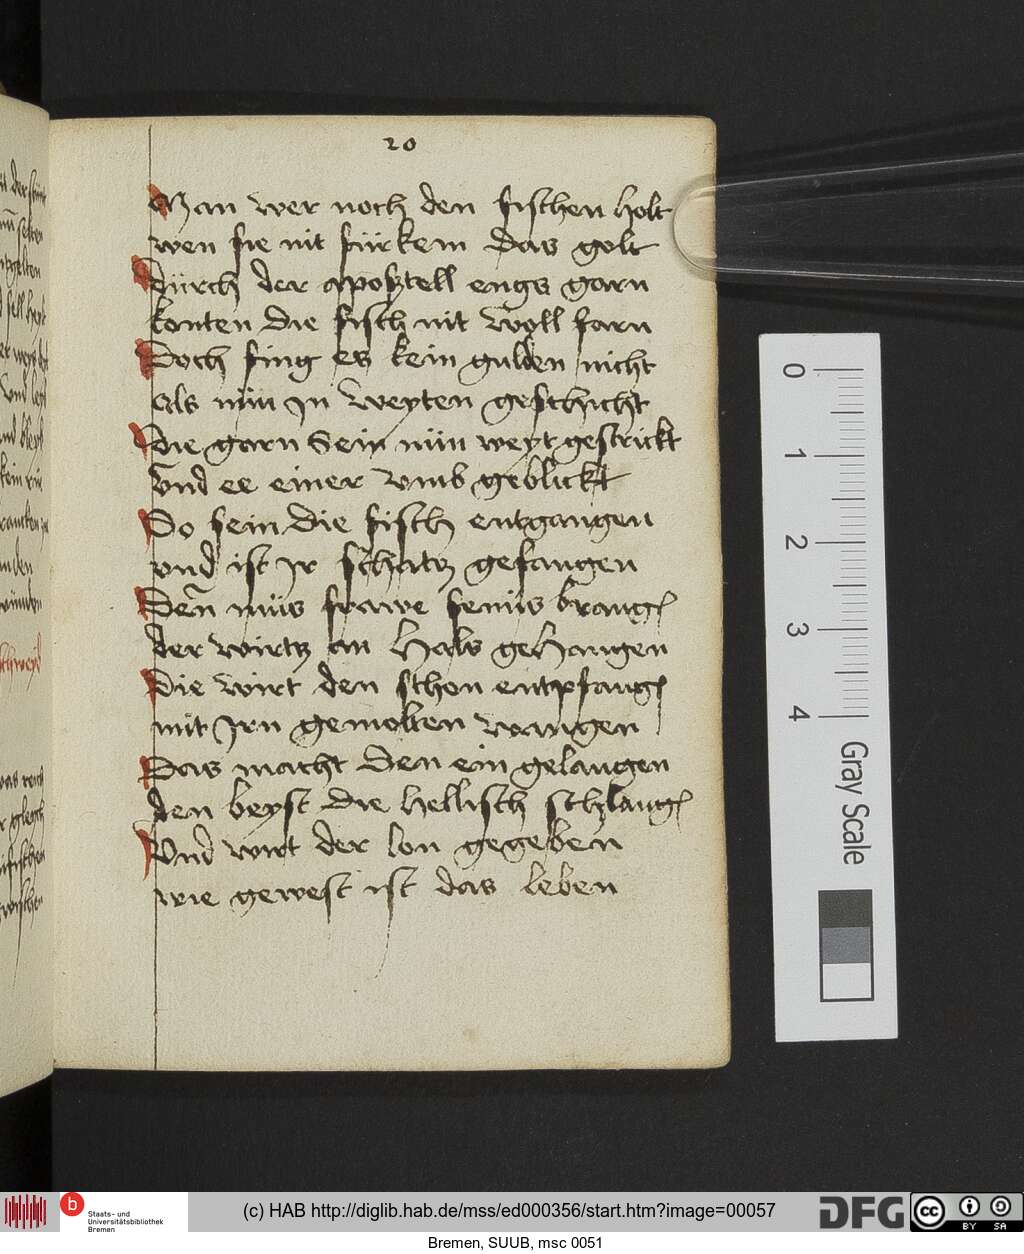 20
Man wer noch den fischen holt
wen sie nit fürkem das golt
Dürch der apostell engs garn
konten die fisch nit woll farn
Doch fing es kein gulden nicht
als nün jn weyten geschicht
Die garn Sein nün weyt gestrickt
vnd ee einer vmb geblickt
So sein die fisch entgangen
vnd ist jr schatz gefangen
Den müs frawe fenüs brang
der wirtz an hals gehangen
Die wirt den schon entpfang
mit jrn gemolten wangen
Das macht den ein gelangen
den beyst die hellisch schlang
Vnd wirt der lon gegeben
wie gewest ist das leben
0
1
2
3
4
Gray Scale
b
Staats- und
Universitätsbibliothek
Bremen
(c) HAB http://diglib.hab.de/mss/ed000356/start.htm?image=00057
DFG
cc
BY SA
Bremen, SUUB, msc 0051